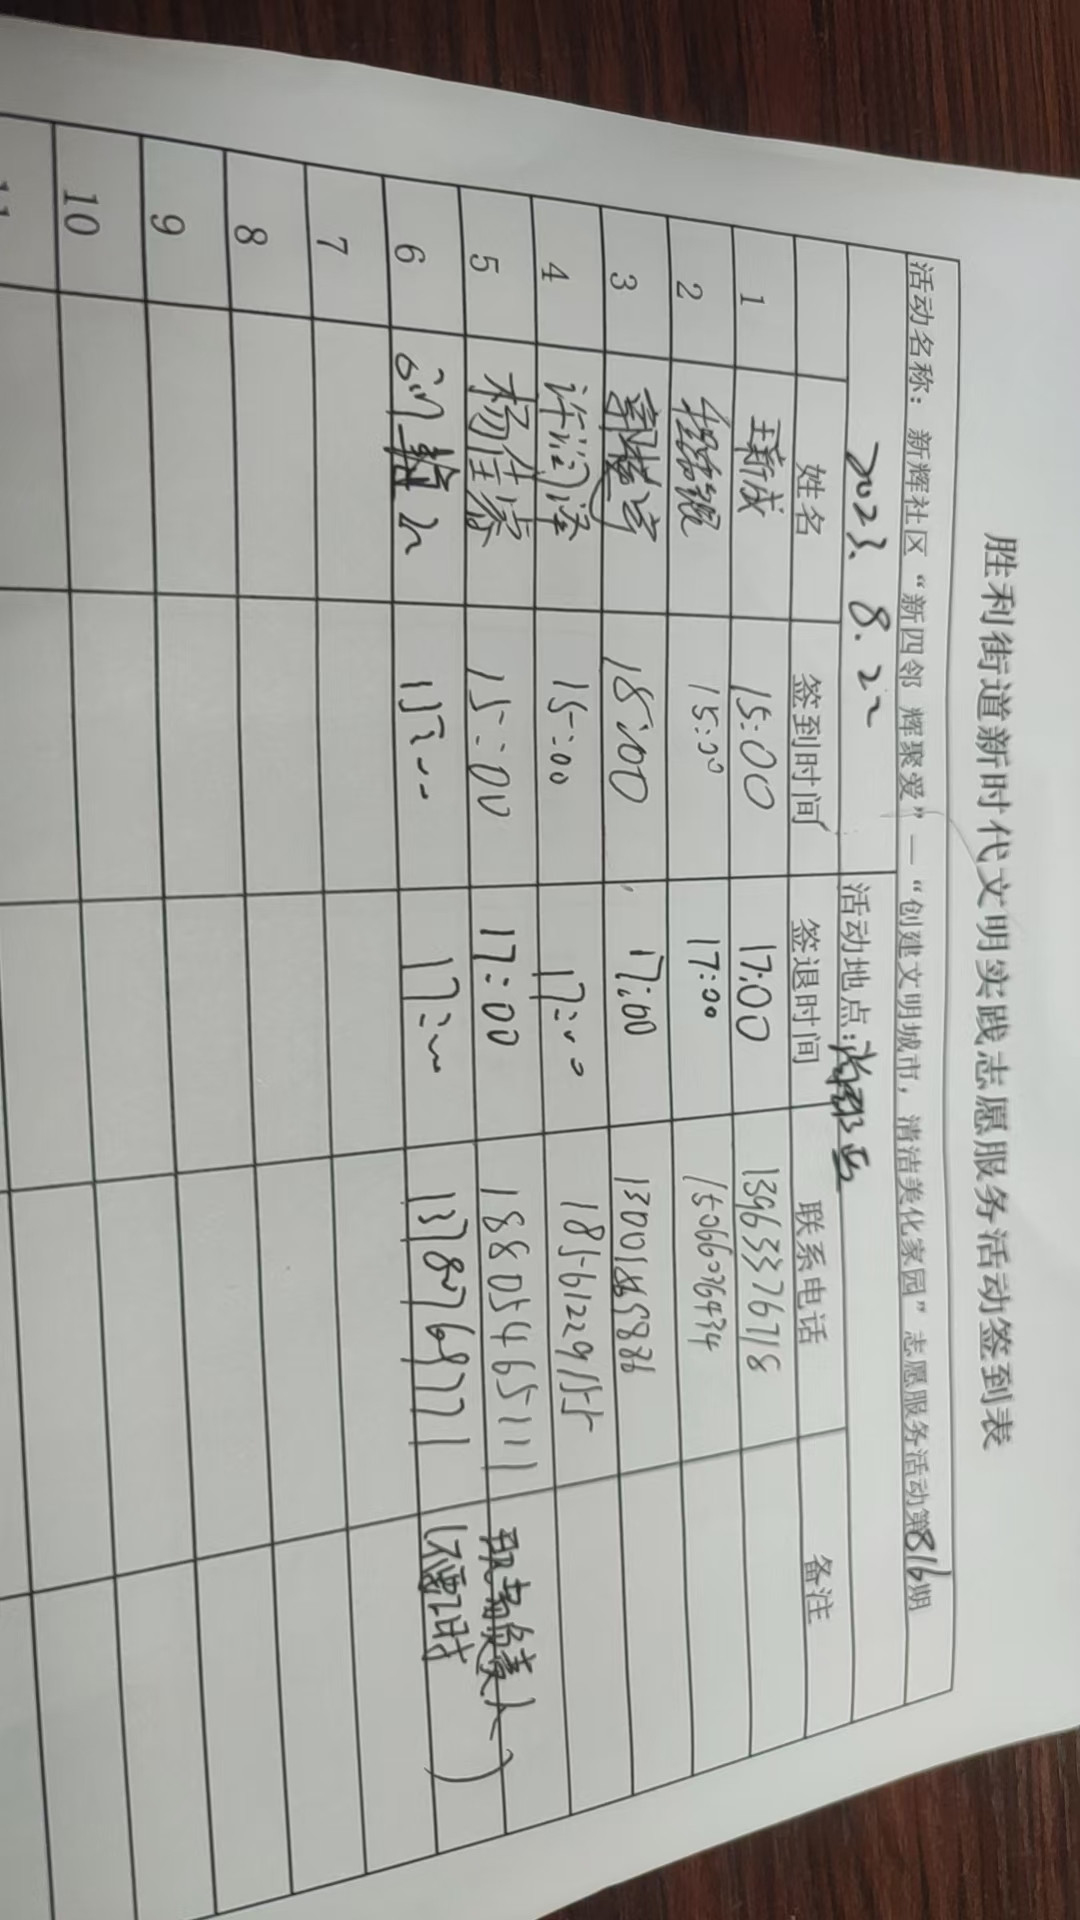 胜利街道新时代文明实践志愿服务活动签到表
活动名称：新辉社区“新四邻 辉聚爱”—“创建文明城市，清洁美化家园”志愿服务活动第816期
2023.8.22 活动地点：
姓名 签到时间 签退时间 联系电话 备注
1 15:00 17:00 13963376718
2 15:00 17:00 15066036434
3 17:00
4 许润泽 15:00 17:00 18561229155
5 杨佳蓉 15:00 17:00 18805465111
6 15:00 17:00
7
8
9
10
11